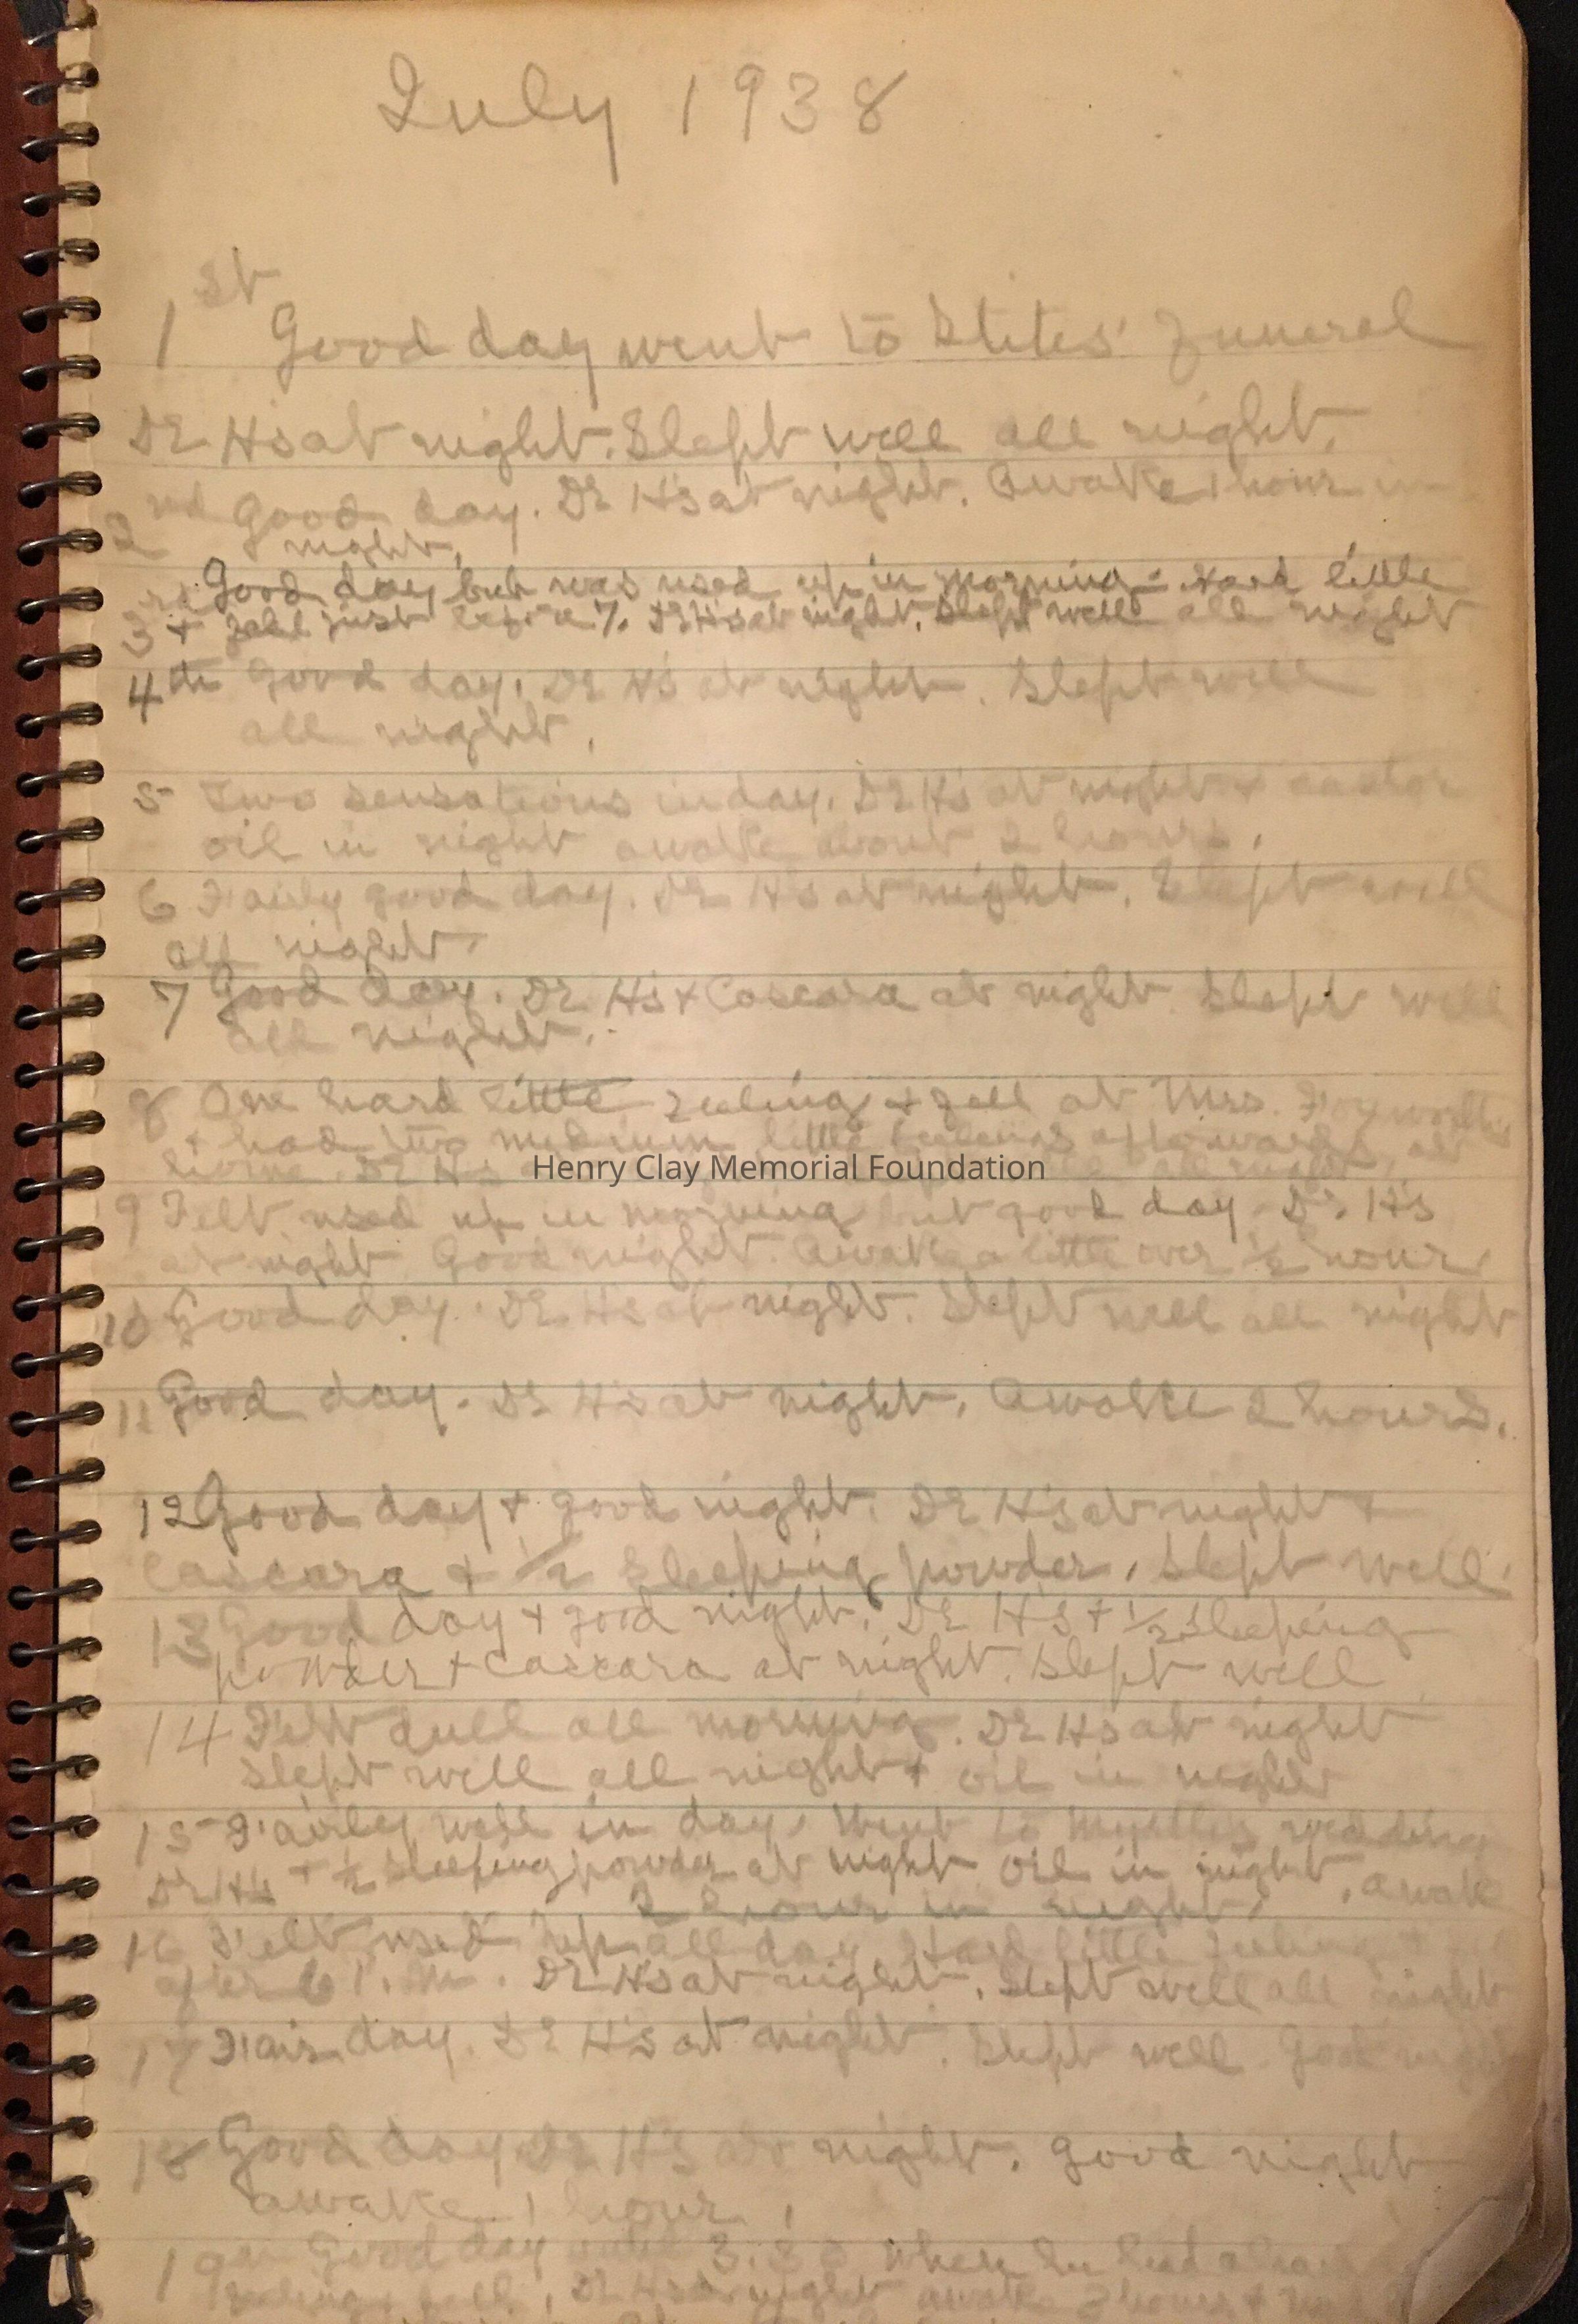 July 1938
1st Good day went to Stites' Funeral
Dr H's at night. Slept well all night.
2nd Good day. Dr H's at night. Awake 1 hour in
night.
3rd Good day but was used up in morning. Hard little
+ fall just before 7. Dr H's at night. Slept well all night
4th Good day. Dr H's at night. Slept well
all night.
5 Two sensations in day. Dr H's at night + castor
oil in night awake about 2 hours.
6 Fairly good day. Dr H's at night. Slept well
all night.
7 Good day. Dr H's + Cascara at night. Slept well
all night.
8 One hard little feeling + fall at Mrs.
+ had two medium little feelings afterwards at
home. Dr H's all night.
Henry Clay Memorial Foundation
9 Felt used up in morning but good day. Dr. H's
at night. Good night. Awake a little over 1/2 hour.
10 Good day. Dr H's at night. Slept well all night
11 Good day. Dr H's at night. Awake 2 hours.
12 Good day + good night. Dr H's at night +
Cascara + 1/2 Sleeping powder. Slept well.
13 Good day + good night. Dr H's + 1/2 Sleeping
powder + Cascara at night. Slept well
14 Felt dull all morning. Dr H's at night
Slept well all night + oil in night
15 Fairly well in day. Went to wedding
Dr H's + 1/2 Sleeping powder at night oil in night. awake
hour in night.
16 Felt used up all day Hard little feeling +
after 6 P.M. Dr H's at night. Slept well all night
17 Fair day. Dr H's at night. Slept well. Good night
18 Good day Dr H's at night. good night
awake 1 hour.
19 Good day until 3.30 when he had a hard
feeling fall. Dr H's at night awake 2 hours +